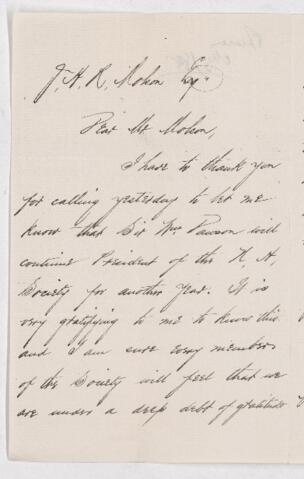 J. H. R. Molson Esq.
Dear Mr Molson,
I have to thank you
for calling yesterday to let me
know that Sir Wm Dawson will
continue President of the N. H.
Society for another year. It is
very gratifying to me to know this
and I am sure every member
of the Society will feel that we
are under a deep debt of gratitude